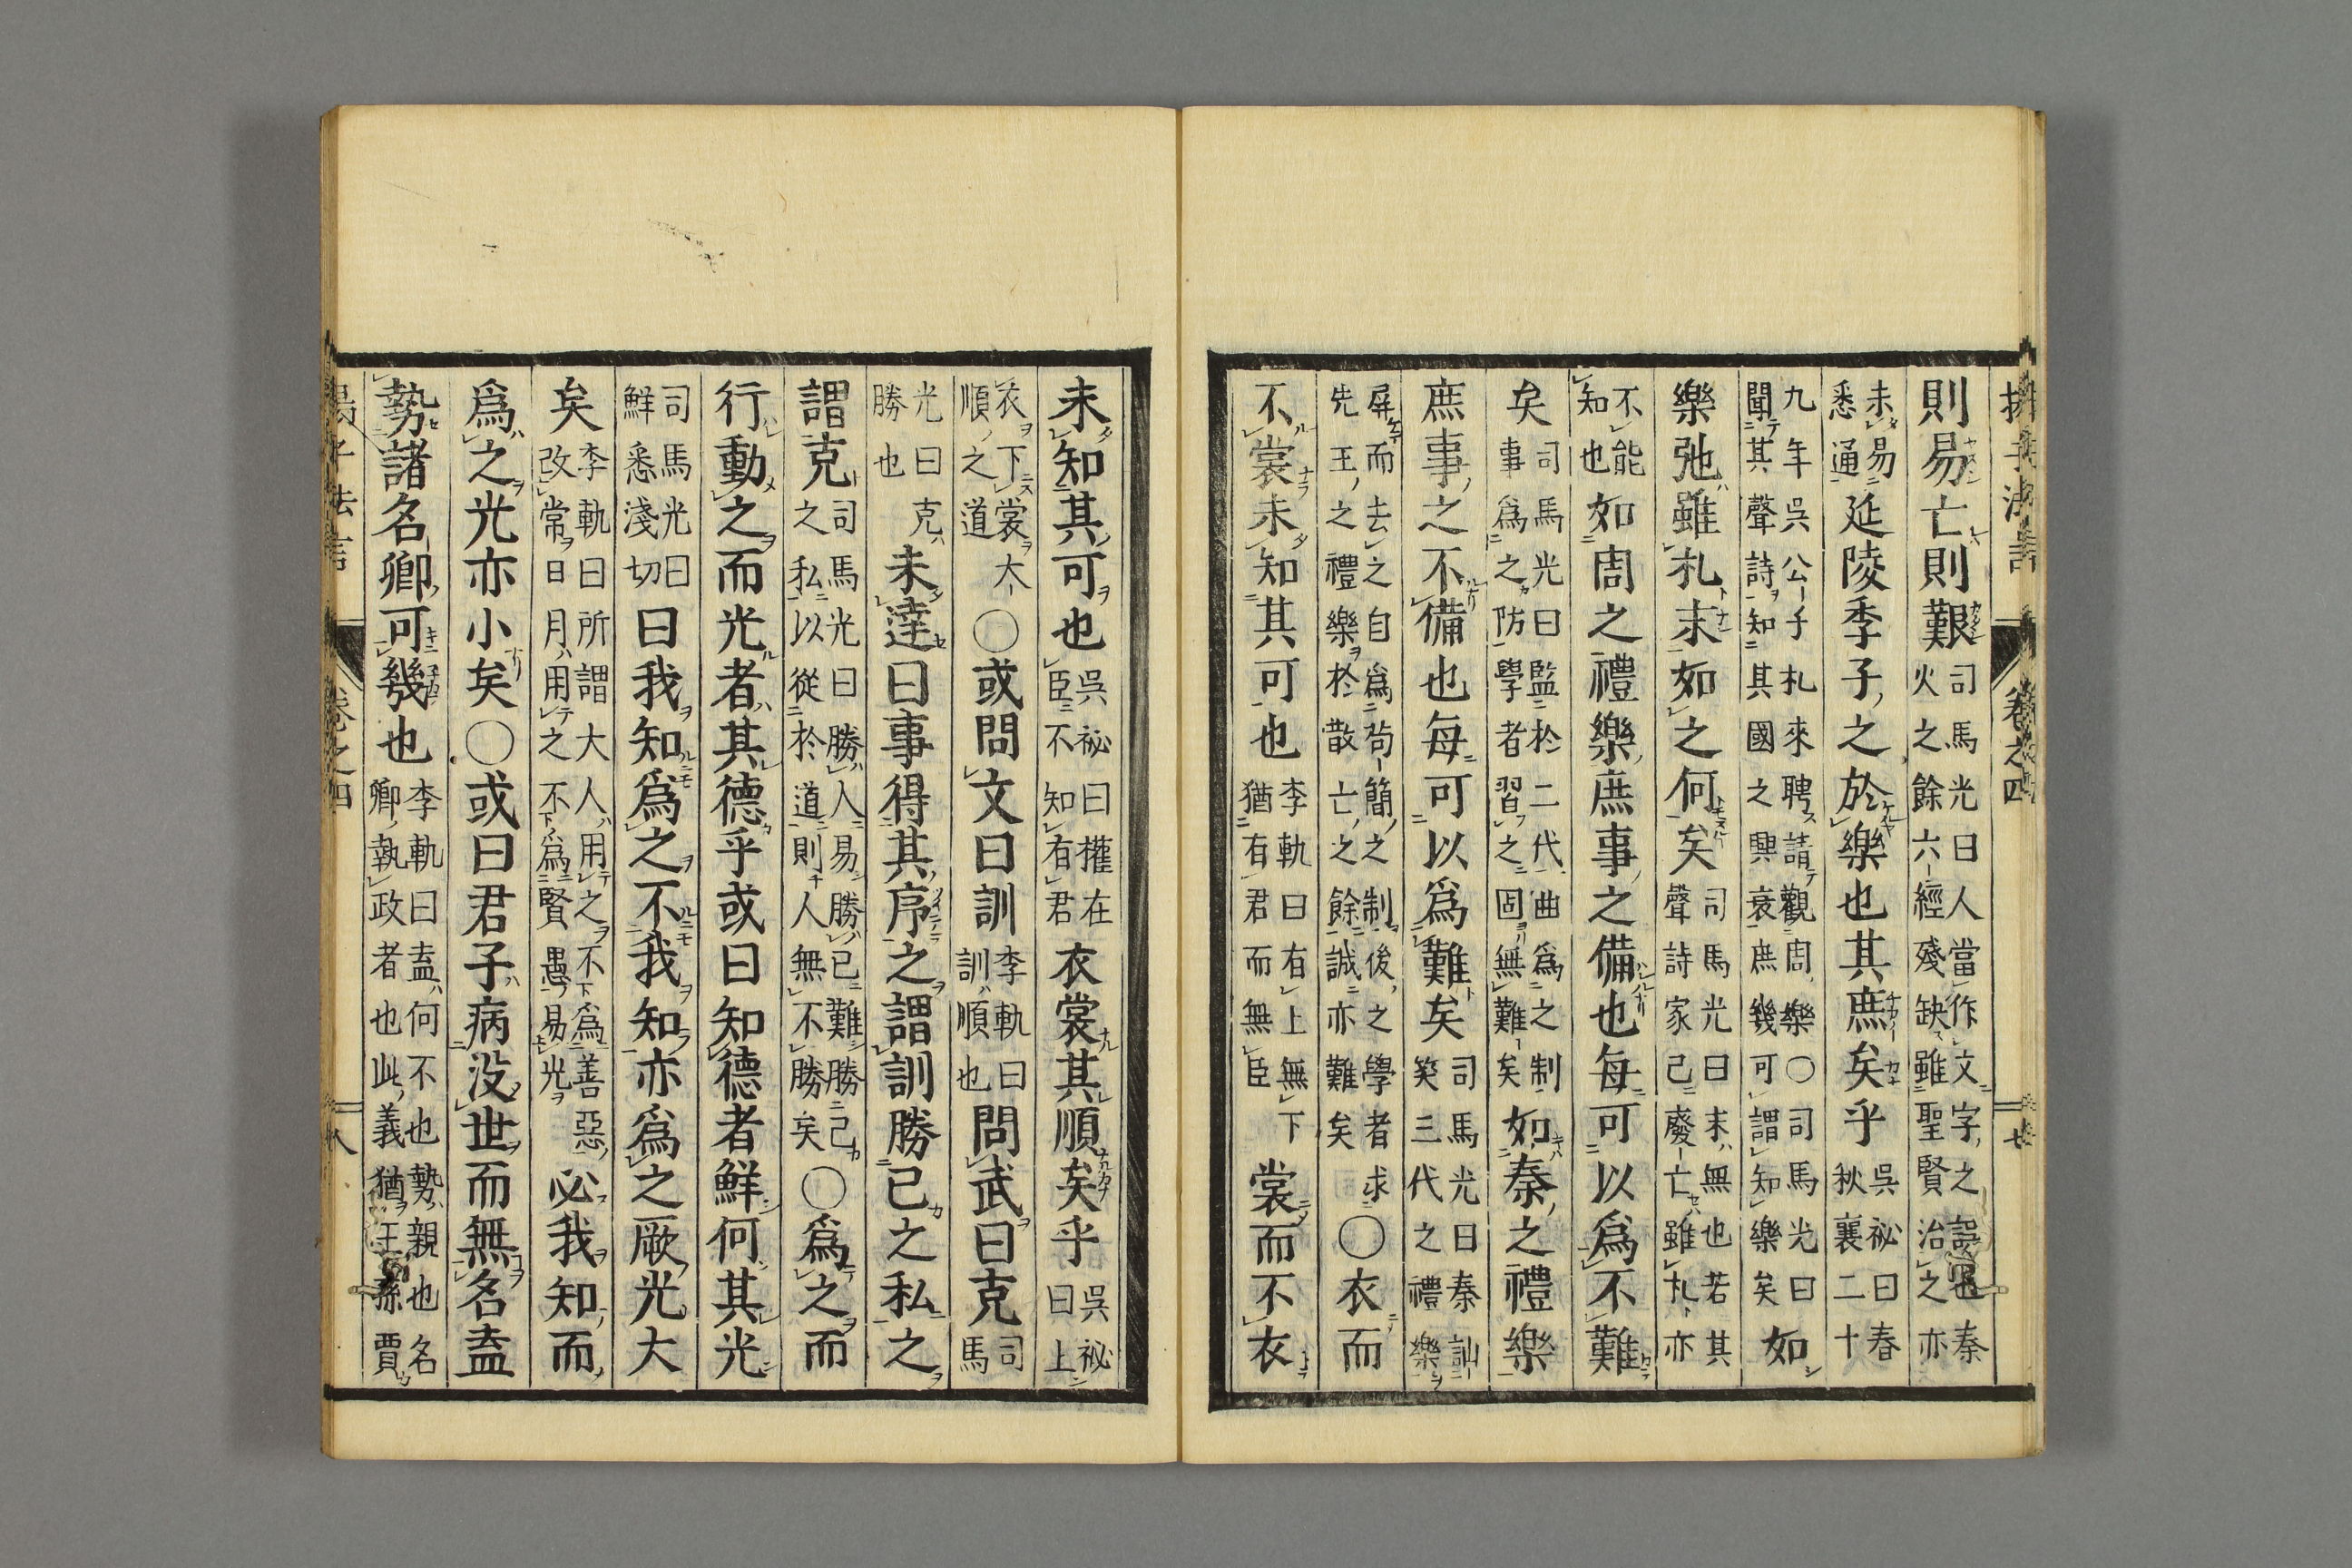 則易亡則艱司馬光曰人當作文字之誤也秦火之餘六經殘缺雖聖賢治之亦
未易悉通延陵季子之於樂也其庶矣乎吳祕曰春秋襄二十
九年吳公子札來聘請觀周樂○司馬光曰聞其聲詩知其國之興衰庶幾可謂知樂矣如
樂弛雖札末如之何矣司馬光曰末無也若其聲詩家已廢亡雖札亦
不能知也如周之禮樂庶事之備也每可以爲不難
矣司馬光曰監於二代曲爲之制事爲之防學者習之固無難矣如秦之禮樂
庶事之不備也每可以爲難矣司馬光曰秦訕笑三代之禮樂
屏而去之自爲苟簡之制後之學者求先王之禮樂於散亡之餘誠亦難矣○衣而
不裳未知其可也李軌曰有上無下猶有君而無臣裳而不衣
未知其可也吳祕曰權在臣不知有君衣裳其順矣乎吳祕曰上
衣下裳大順之道○或問文曰訓李軌曰訓順也問武曰克司馬
光曰克勝也未達曰事得其序之謂訓勝己之私之
謂克司馬光曰勝人易勝己難勝己之私以從於道則人無不勝矣○爲之而
行動之而光者其德乎或曰知德者鮮何其光
司馬光曰鮮悉淺切曰我知爲之不我知亦爲之厥光大
矣李軌曰所謂大人用之不爲善惡改常日月用之不爲賢愚易光必我知而
爲之光亦小矣○或曰君子病没世而無名盍
勢諸名卿可幾也李軌曰盍何不也勢親也名卿執政者也此義猶王孫賈
卷之四
七
卷之四
八